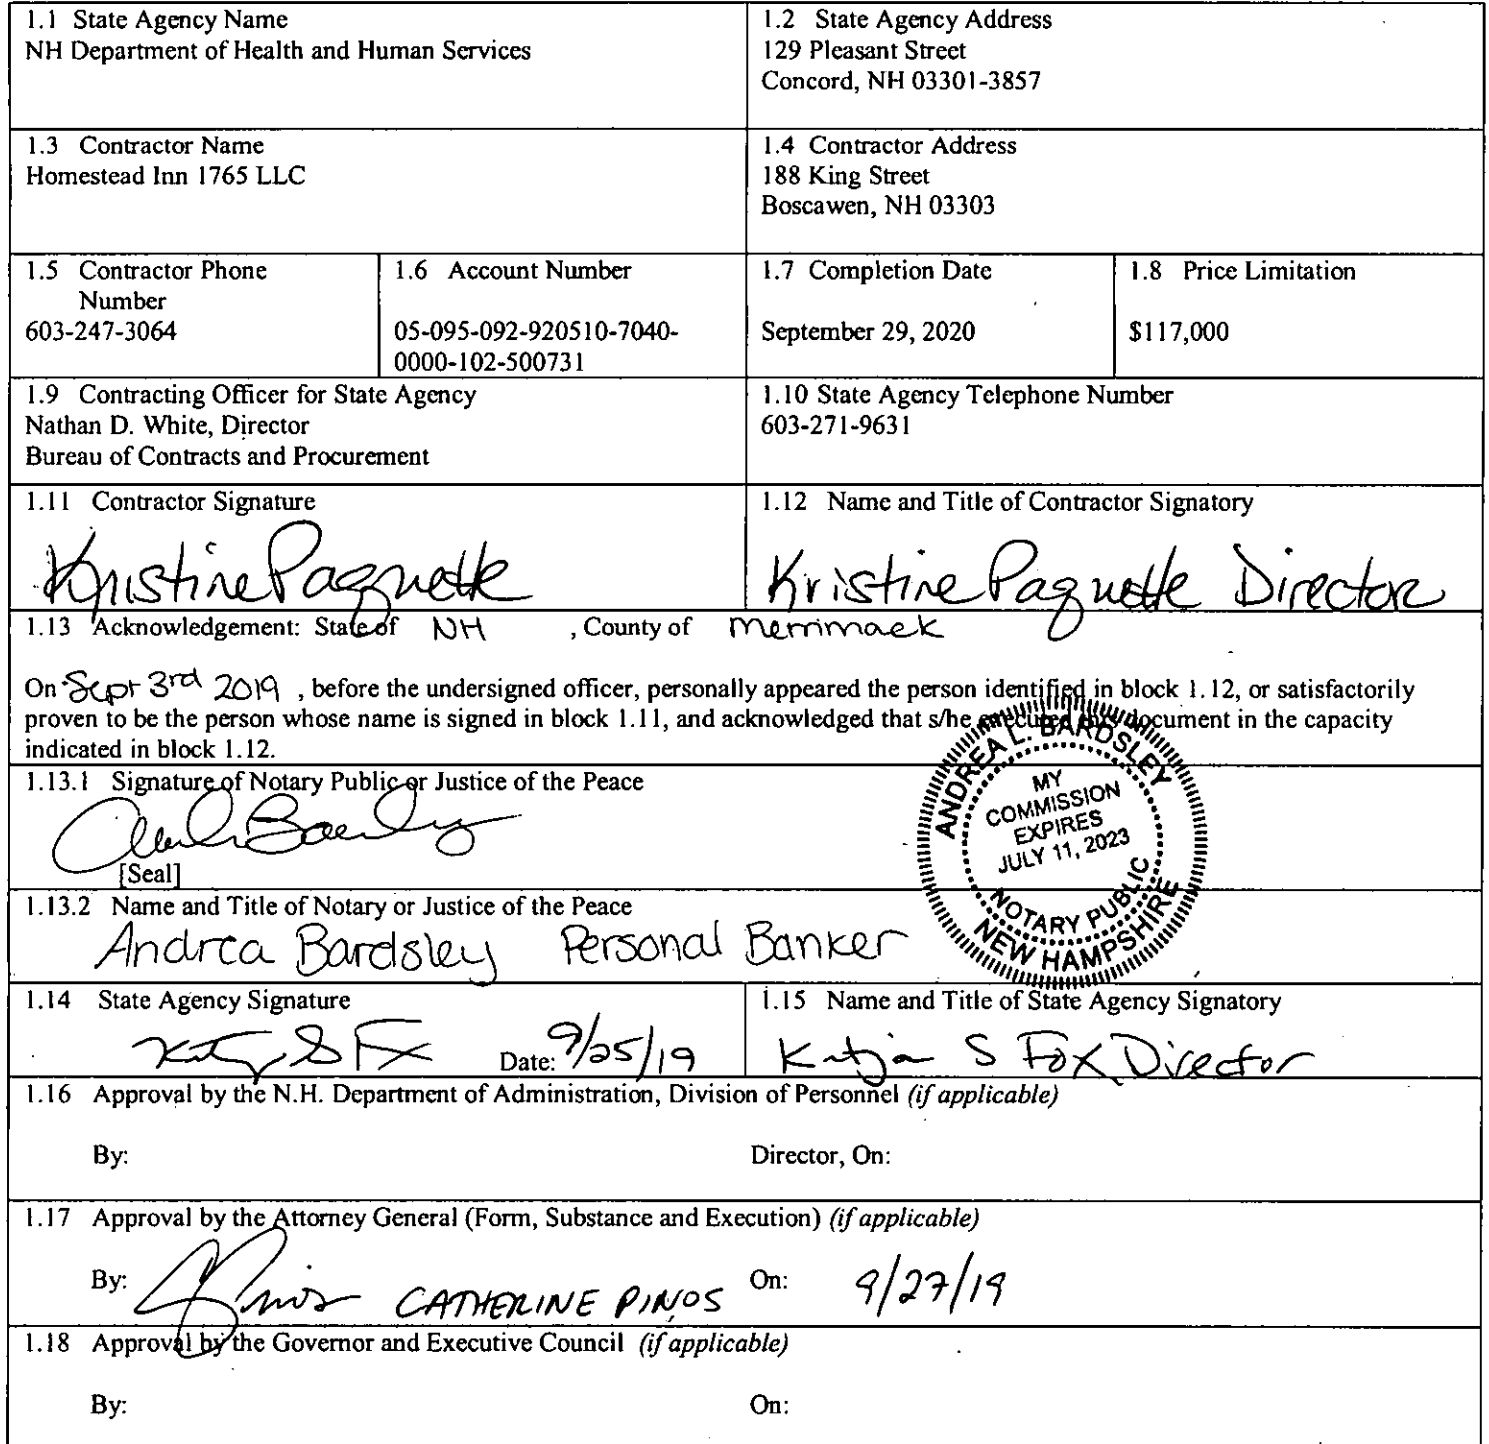 1.1 State Agency Name
NH Department of Health and Human Services
1.2 State Agency Address
129 Pleasant Street
Concord, NH 03301-3857
1.3 Contractor Name
Homestead Inn 1765 LLC
1.4 Contractor Address
188 King Street
Boscawen, NH 03303
1.5 Contractor Phone
Number
603-247-3064
1.6 Account Number
05-095-092-920510-7040-
0000-102-500731
1.7 Completion Date
September 29, 2020
1.8 Price Limitation
$117,000
1.9 Contracting Officer for State Agency
Nathan D. White, Director
Bureau of Contracts and Procurement
1.10 State Agency Telephone Number
603-271-9631
1.11 Contractor Signature
Kristine Paquette
1.12 Name and Title of Contractor Signatory
Kristine Paquette Director
1.13 Acknowledgement: State of NH , County of Merrimack
On Sept 3rd 2019 , before the undersigned officer, personally appeared the person identified in block 1.12, or satisfactorily
proven to be the person whose name is signed in block 1.11, and acknowledged that s/he executed this document in the capacity
indicated in block 1.12.
1.13.1 Signature of Notary Public or Justice of the Peace
[Seal]
ANDREA L. BARDSLEY
MY
COMMISSION
EXPIRES
JULY 11, 2023
NOTARY PUBLIC
NEW HAMPSHIRE
1.13.2 Name and Title of Notary or Justice of the Peace
Andrea Bardsley Personal Banker
1.14 State Agency Signature
Date: 9/25/19
1.15 Name and Title of State Agency Signatory
Katja S Fox, Director
1.16 Approval by the N.H. Department of Administration, Division of Personnel (if applicable)
By: Director, On:
1.17 Approval by the Attorney General (Form, Substance and Execution) (if applicable)
By: CATHERINE PINOS On: 9/27/19
1.18 Approval by the Governor and Executive Council (if applicable)
By: On: